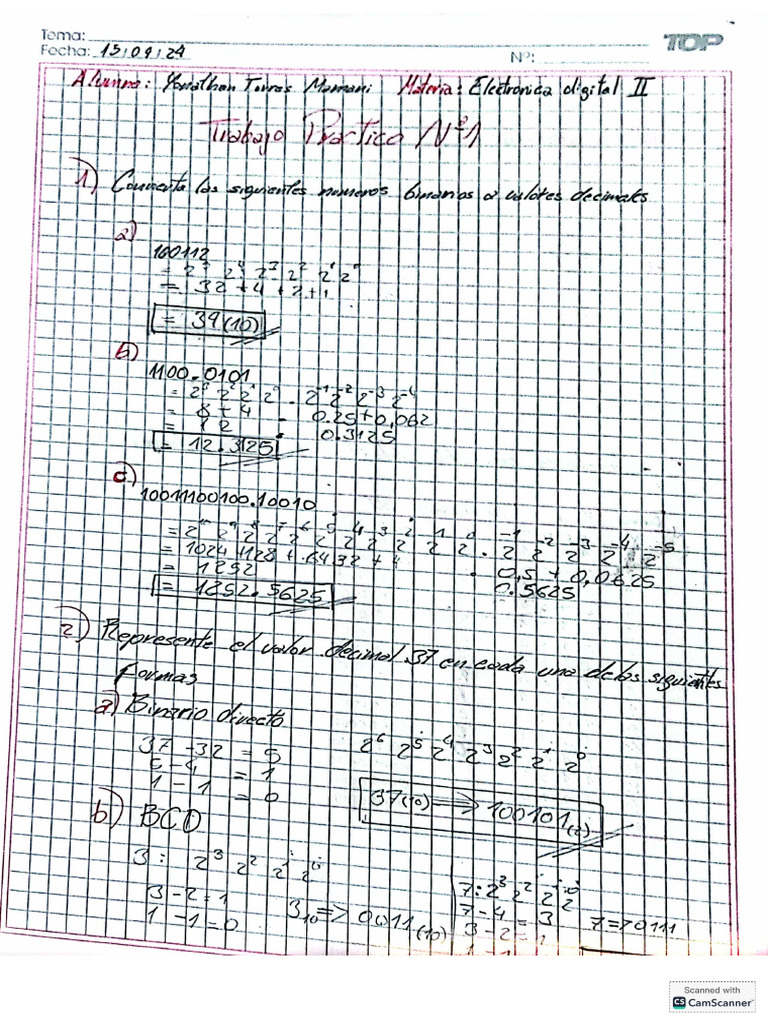 Tema:
TOP
Fecha: 15/09/24
Nº:
Alumno: Yonathan Torres Mamani Materia: Electronica digital II
Trabajo Practico Nº1
1) Convierta los siguientes numeros binarios a valores decimales
a)
100112
= 2⁵ 2⁴ 2³ 2² 2¹ 2⁰
= 32 + 4 + 2 + 1
= 39(10)
b)
1100.0101
= 2³ 2² 2¹ 2⁰ . 2⁻¹ 2⁻² 2⁻³ 2⁻⁴
= 8 + 4 . 0.25+0,062
= 12 . 0.3125
= 12.3125
c)
10011100100.10010
= 2¹⁰ 2⁹ 2⁸ 2⁷ 2⁶ 2⁵ 2⁴ 2³ 2² 2¹ 2⁰ . 2⁻¹ 2⁻² 2⁻³ 2⁻⁴ 2⁻⁵
= 1024 +128 + 64 32 + 4 . 0,5 + 0,0625
= 1252 0.5625
= 1252.5625
2) Represente el valor decimal 37 en cada una de las siguientes
formas
a) Binario directo
37 - 32 = 5 2⁶ 2⁵ 2⁴ 2³ 2² 2¹ 2⁰
5 - 4 = 1
1 - 1 = 0
37(10) => 100101(2)
b) BCD
3: 2³ 2² 2¹ 2⁰
3 - 2 = 1
1 - 1 = 0
3₁₀ => 0011(10)
7: 2³ 2² 2¹ 2⁰
7 - 4 = 3 7 => 0111
3 - 2 = 1
Scanned with
CS CamScanner